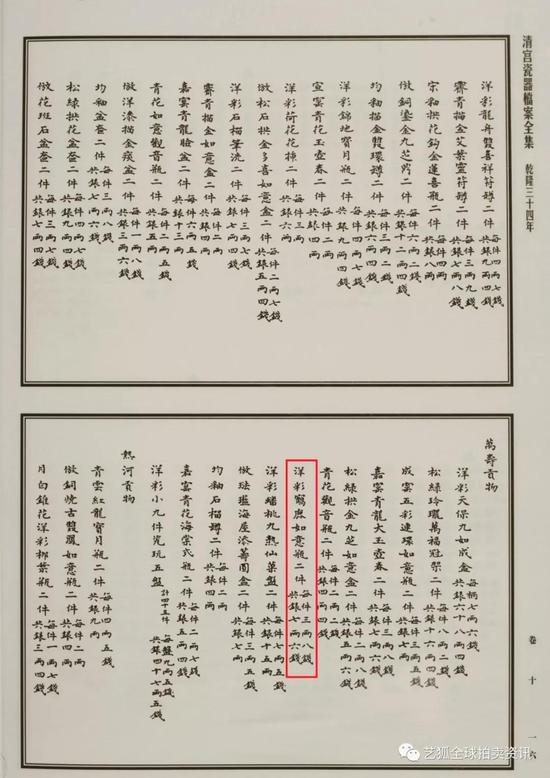 清宫瓷器檔案全集 乾隆三十四年
洋彩龍舟雙喜祥符罇二件 每件四兩七錢 共銀九兩四錢
霽青描金艾葉靈符罇二件 每件三兩九錢 共銀七兩八錢
宗釉拱花鈎金蓬喜瓶二件 每件四兩 共銀八兩
倣銅鎏金九芝罇二件 每件六兩二錢 共銀十二兩四錢
均釉描金雙環罇二件 每件三兩二錢 共銀六兩四錢
洋彩錦地寶月瓶二件 每件四兩七錢 共銀九兩四錢
宣窰青花玉壺春二件
洋彩荷花花二件 每件二兩二錢 共銀四兩四錢
倣松石拱金多喜如意盒二件 每件二兩七錢 共銀五兩四錢
洋彩石榴筆洗二件 每件三兩七錢 共銀七兩四錢
霽青描金如意盒二件 每件二兩 共銀四兩
嘉窰青龍臉盆二件 每件六兩五錢 共銀十三兩
青花如意觀音瓶二件 每件二兩五錢 共銀五兩
倣洋漆描金痰盆二件 每件一兩八錢 共銀三兩六錢
均釉盆奩二件 每件三兩八錢 共銀七兩六錢
松綠拱花盆奩二件 每件三兩七錢 共銀七兩四錢
倣花斑石盆奩二件 每件三兩七錢 共銀七兩四錢
萬壽貢物
洋彩天保九如成盒 每桶七兩六錢 共銀六十八兩四錢
松綠玲瓏萬福冠架二件 每件八兩二錢 共銀十六兩四錢
成窰五彩連環如意瓶二件 共銀四兩四錢
嘉窰青龍大玉壺春二件 每件三兩八錢 共銀七兩六錢
松綠拱金九芝如意盒二件 每件二兩八錢 共銀五兩六錢
青花觀音瓶二件 每件二兩 共銀四兩
洋彩鶴鹿如意瓶二件 每件三兩八錢 共銀七兩六錢
洋彩蟠桃九熟仙菓盤二件 每件七兩五錢 共銀十五兩
倣琺瑯海屋添籌圓盒二件 每件三兩五錢 共銀七兩
均釉石榴罇二件 每件二兩 共銀四兩
嘉窰青花海棠式瓶二件 每件二兩七錢 共銀五兩四錢
洋彩小九件瓷玩五盤 計四十五件 每盤九兩五錢 共銀四十七兩五錢
熱河貢物
青雲紅龍寶月瓶二件 每件四兩五錢 共銀九兩
倣銅燒古雙翼如意瓶二件 每件二兩 共銀四兩
月白錐花洋彩柳葉瓶二件 每件一兩七錢 共銀三兩四錢
卷十
一六
艺狐全球拍卖资讯